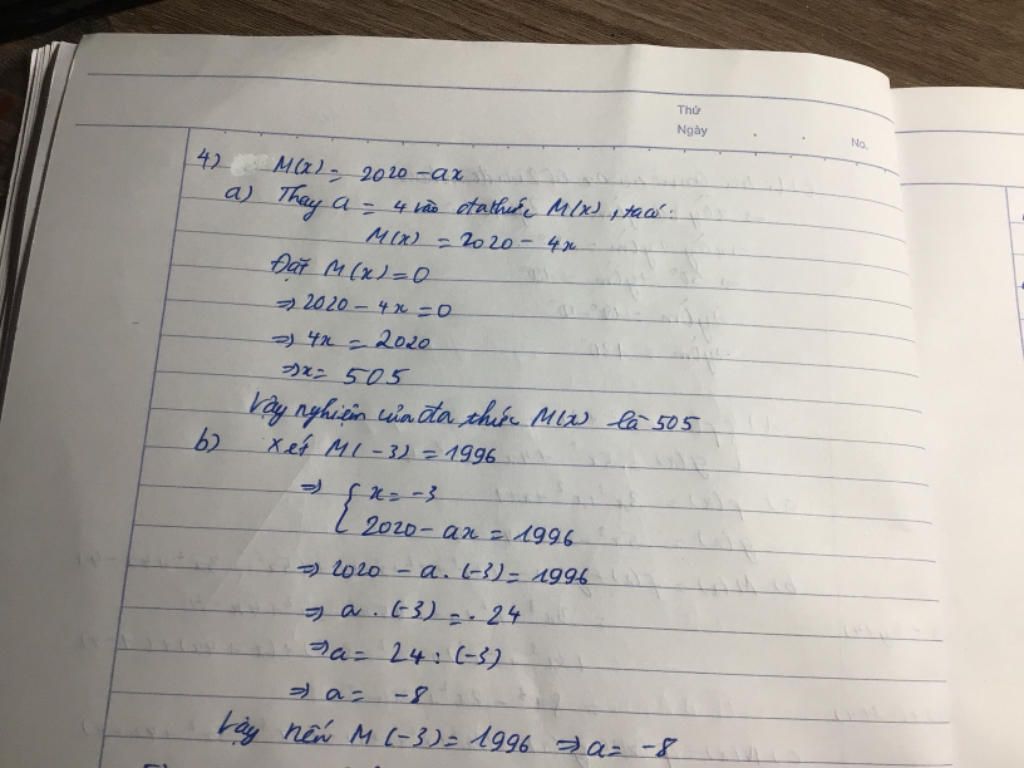 Thứ
Ngày
No.
4) M(x) = 2020 - ax
a) Thay a = 4 vào đa thức M(x), ta có:
M(x) = 2020 - 4x
Đặt M(x) = 0
⇒ 2020 - 4x = 0
⇒ 4x = 2020
⇒ x = 505
Vậy nghiệm của đa thức M(x) là 505
b) Xét M(-3) = 1996
⇒ { x = -3
2020 - ax = 1996
⇒ 2020 - a . (-3) = 1996
⇒ a . (-3) = 24
⇒ a = 24 : (-3)
⇒ a = -8
Vậy nếu M(-3) = 1996 ⇒ a = -8